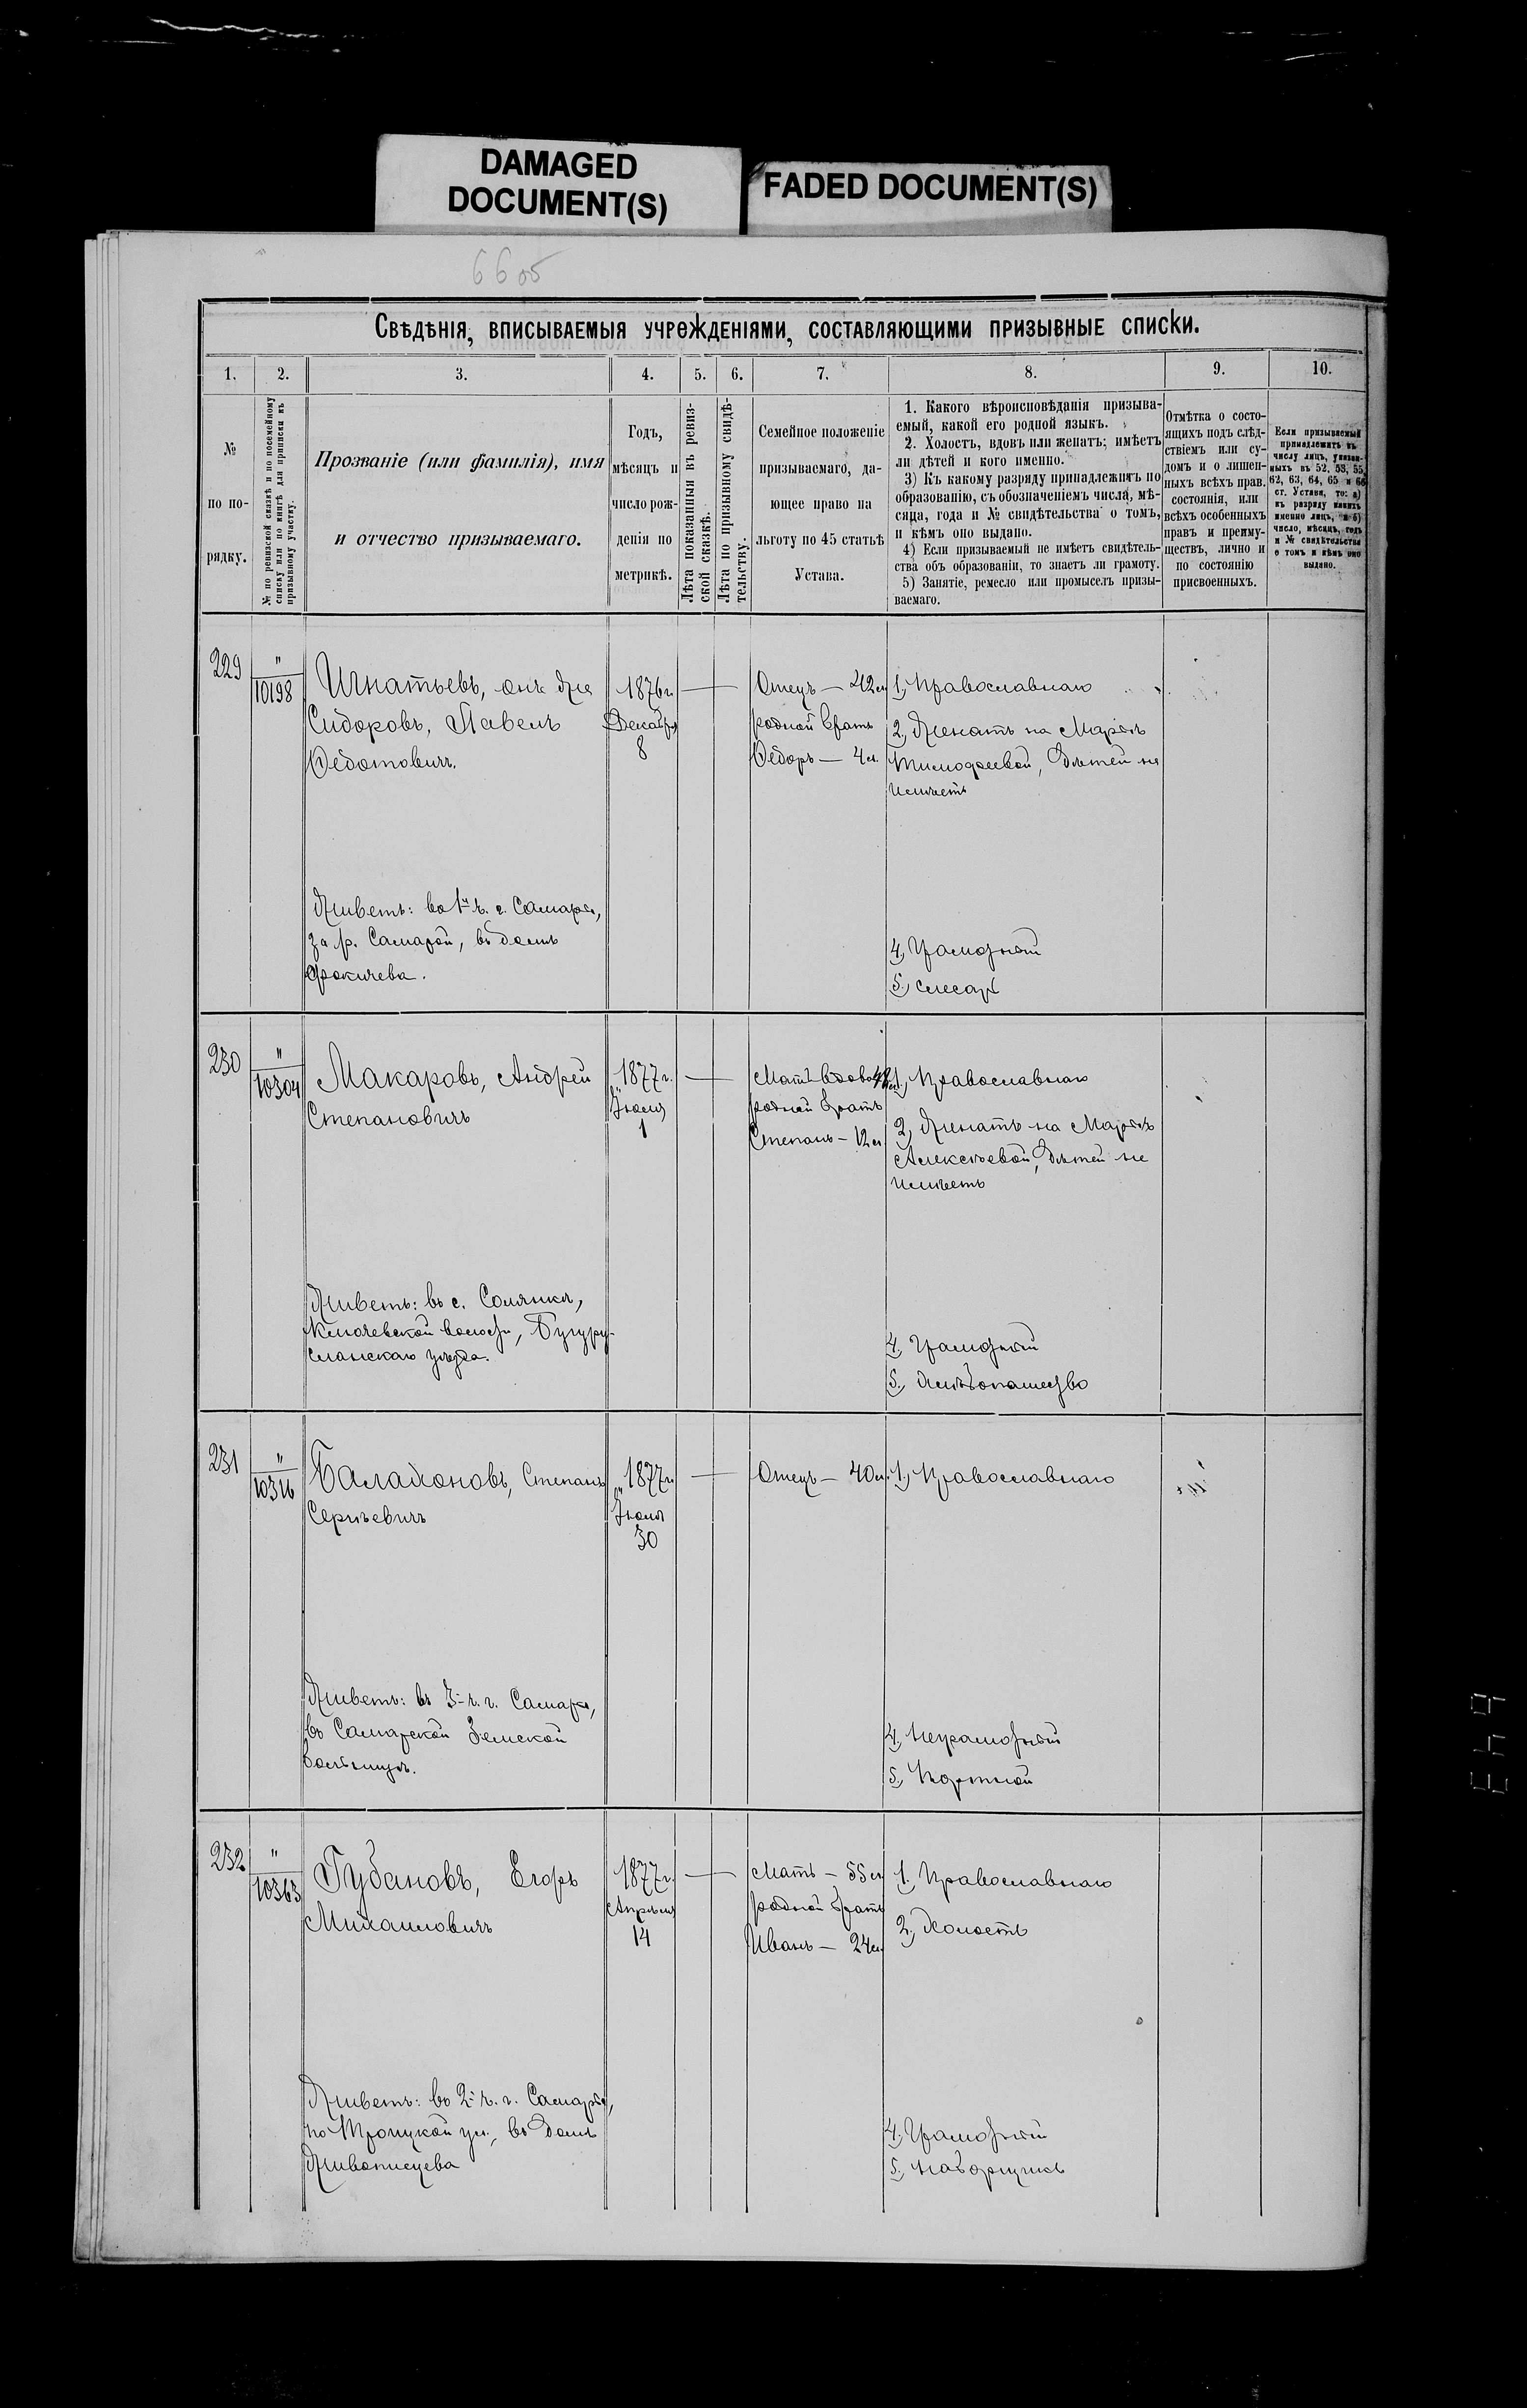 DAMAGED
DOCUMENT(S)
FADED DOCUMENT(S)
6605
Свѣдѣнія, вписываемыя учрежденіями, составляющими призывные списки.
1. 2. 3. 4. 5. 6. 7. 8. 9. 10.
№
по по-
рядку.
№ по ревизской сказкѣ и по посемейному
списку или по книгѣ для приписки къ
призывному участку.
Прозваніе (или фамилія), имя
и отчество призываемаго.
Годъ,
мѣсяцъ и
число рож-
денія по
метрикѣ.
Лѣта показанныя въ ревиз-
ской сказкѣ.
Лѣта по призывному свидѣ-
тельству.
Семейное положеніе
призываемаго, да-
ющее право на
льготу по 45 статьѣ
Устава.
1. Какого вѣроисповѣданія призыва-
емый, какой его родной языкъ.
2. Холостъ, вдовъ или женатъ; имѣетъ
ли дѣтей и кого именно.
3) Къ какому разряду принадлежитъ по
образованію, съ обозначеніемъ числа, мѣ-
сяца, года и № свидѣтельства о томъ,
и кѣмъ оно выдано.
4) Если призываемый не имѣетъ свидѣтель-
ства объ образованіи, то знаетъ ли грамоту.
5) Занятіе, ремесло или промыселъ призы-
ваемаго.
Отмѣтка о состо-
ящихъ подъ слѣд-
ствіемъ или су-
домъ и о лишен-
ныхъ всѣхъ прав.
состоянія, или
всѣхъ особенныхъ
правъ и преиму-
ществъ, лично и
по состоянію
присвоенныхъ.
Если призываемый
принадлежитъ къ
числу лицъ, указан-
ныхъ въ 52, 53, 55,
62, 63, 64, 65 и 66
ст. Устава, то: а)
къ разряду какихъ
именно лицъ, и б)
число, мѣсяцъ, годъ
и № свидѣтельства
о томъ и кѣмъ оно
выдано.
229
"
10198
Игнатьевъ, онъ же
Сидоровъ, Павелъ
Ѳедотовичъ.
1876 г.
Декабря
8
Отецъ — 42 л.
родной братъ
Ѳедоръ — 4 л.
1, Православнаго
2, Женатъ на Маріи
Тимофеевой, дѣтей не
имѣетъ
Живетъ: въ 1й ч. г. Самары,
за р. Самарой, въ домѣ
4, Грамотный
5, слесарь
230
"
10304
Макаровъ, Андрей
Степановичъ
1877 г.
Іюля
1
Мать вдова
родной братъ
Степанъ — 12 л.
1, Православнаго
2, Женатъ на Маріи
Алексѣевой, дѣтей не
имѣетъ
Живетъ: въ с. Солянкѣ,
Ключевской волости, Бугуру-
сланскаго уѣзда.
4, Грамотный
5, хлѣбопашество
231
"
10316
Балахоновъ, Степанъ
Сергѣевичъ
1877 г.
30
Отецъ — 40 л.
1, Православнаго
Живетъ: въ 3й ч. г. Самары,
въ Самарской Земской
больницѣ.
4, Неграмотный
5, Портной
232
"
10363
Губановъ, Егоръ
Михаиловичъ
1877 г.
Апрѣля
14
Мать — 55 л.
родной братъ
Иванъ — 24 л.
1. Православнаго
2, Холостъ
Живетъ: въ 2й ч. г. Самары,
по Троицкой ул., въ домѣ
Живописцева
4, Грамотный
5, наборщикъ